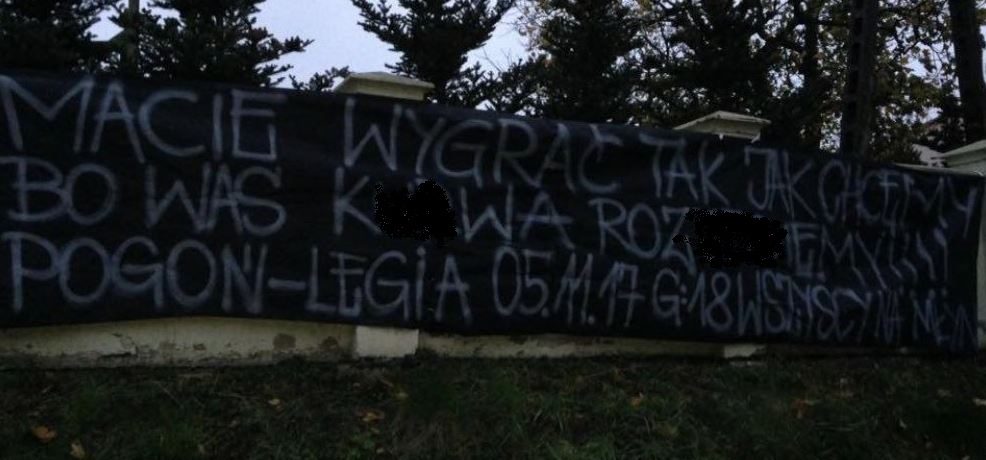 MACIE WYGRAĆ TAK JAK CHCEMY
BO WAS K WA ROZ EMY!!!!
POGOŃ-LEGIA 05.11.17 G:18 WSZYSCY NA MŁYN